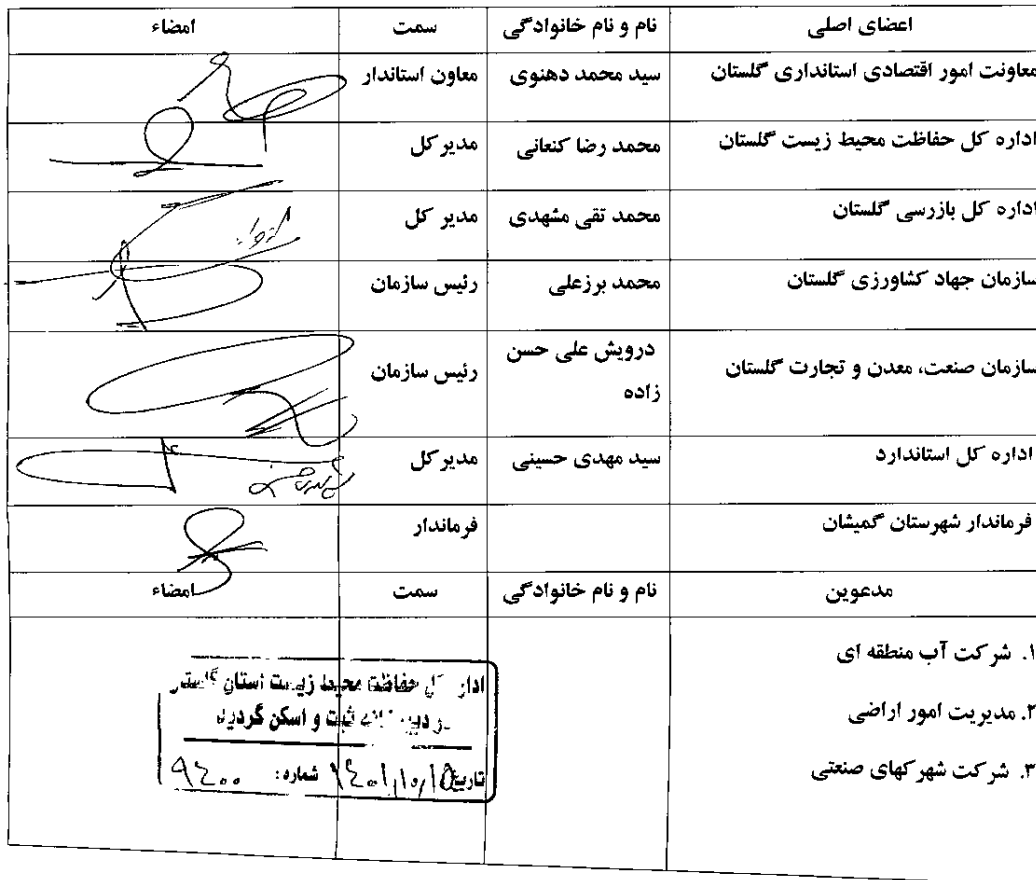 اعضای اصلی نام و نام خانوادگی سمت امضاء
معاونت امور اقتصادی استانداری گلستان سید محمد دهنوی معاون استاندار
اداره کل حفاظت محیط زیست گلستان محمد رضا کنعانی مدیر کل
اداره کل بازرسی گلستان محمد تقی مشهدی مدیر کل
سازمان جهاد کشاورزی گلستان محمد برزعلی رئیس سازمان
سازمان صنعت، معدن و تجارت گلستان درویش علی حسن زاده رئیس سازمان
اداره کل استاندارد سید مهدی حسینی مدیر کل
فرماندار شهرستان گمیشان فرماندار
مدعوین نام و نام خانوادگی سمت امضاء
۱. شرکت آب منطقه ای
۲. مدیریت امور اراضی
۳. شرکت شهرکهای صنعتی
حفاظت محیط زیست استان
ثبت و اسکن گردید
تاریخ ۱۴۰۱/۱۰/۱۵ شماره: ۹۴۰۰